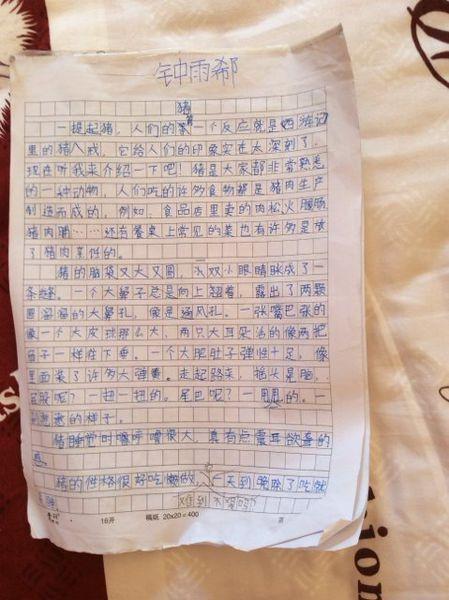 钟雨郗
猪
一提起猪，人们的第一个反应就是西游记
里的猪八戒，它给人们的印象实在太深刻了，
现在听我来介绍一下吧！猪是大家都非常熟悉
的一种动物，人们吃的许多食物都是猪肉生产
制造而成的，例如，食品店里卖的肉松火腿肠
猪肉脯……还有餐桌上常见的菜也有许多是放
了猪肉烹饪的。
猪的脑袋又大又圆，双小眼睛眯成了一
条缝。一个大鼻子总是向上翘着，露出了两颗
圆溜溜的大鼻孔，像是通风孔。一张嘴巴张的
像一个大皮球那么大，两只大耳朵活的像两把
扇子一样往下垂。一个大肥肚子弹性十足，像
里面装了许多大弹簧。走起路来，摇头晃脑，
屁股呢？一扭一扭的。尾巴呢？一甩一甩的。一
的样子。
猪睡觉时噜呼噜很大，真有点震耳欲聋的
感
猪的性格很好吃懒做，一天到晚除了吃就
难到不 吗？
16开 稿纸 20×20=400 页
ion